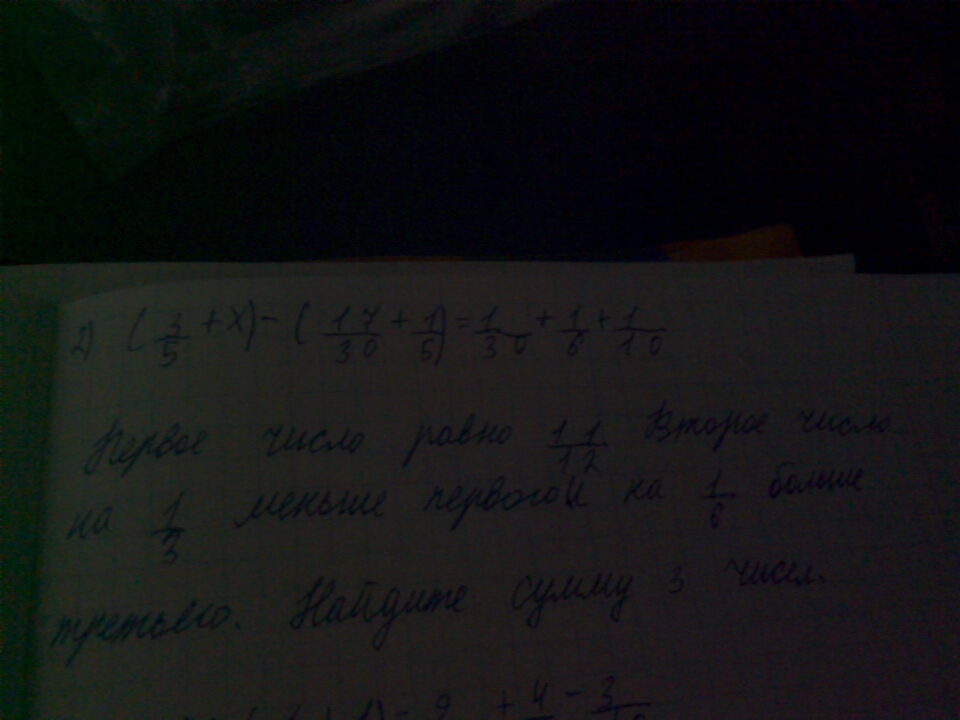 2) (3/5 + x) - (17/30 + 1/5) = 1/30 + 1/6 + 1/10
Первое число равно 11/12 Второе число
на 1/3 меньше первого и на 1/6 больше
третьего. Найдите сумму 3 чисел.